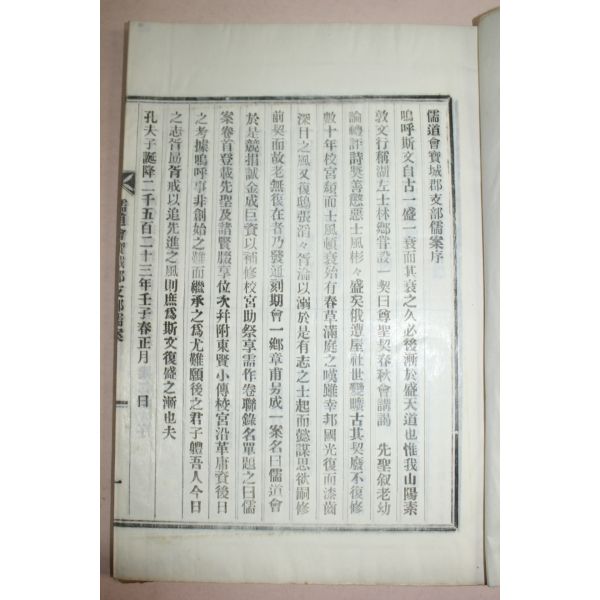 儒道會寶城郡支部儒案序
嗚呼斯文自古一盛一衰而其衰之久必後漸於盛天道也惟我山陽素
敦文行稱湖左士林鄕嘗設一契曰尊聖契春秋會講謁 先聖叙老幼
論禮評詩奬善懲惡士風彬々盛矣俄遭屋社世變曠古其契廢不復修
數十年校宮頹而士風頓衰殆有春草滿庭之嘆雖幸邦國光復而漆齒
深目之風又復鴟張滔々胥淪以溺於是有志之士起而懿謀思欲嗣修
前契而故老無復在者乃發通刻期會一鄕章甫另成一案名曰儒道會
於是競捐誠金成巨資以補修校宮助祭享需作卷聯錄名單題之曰儒
案卷首登載先聖及諸賢腏享位次幷附東賢小傳校宮沿革庸資後日
之考據嗚呼事非創始之難而繼承之爲尤難願後之君子體吾人今日
之志胥勗胥戒以追先進之風則庶爲斯文復盛之漸也夫
孔夫子誕降二千五百二十三年壬子春正月 日
儒道會寶城郡支部儒案
一